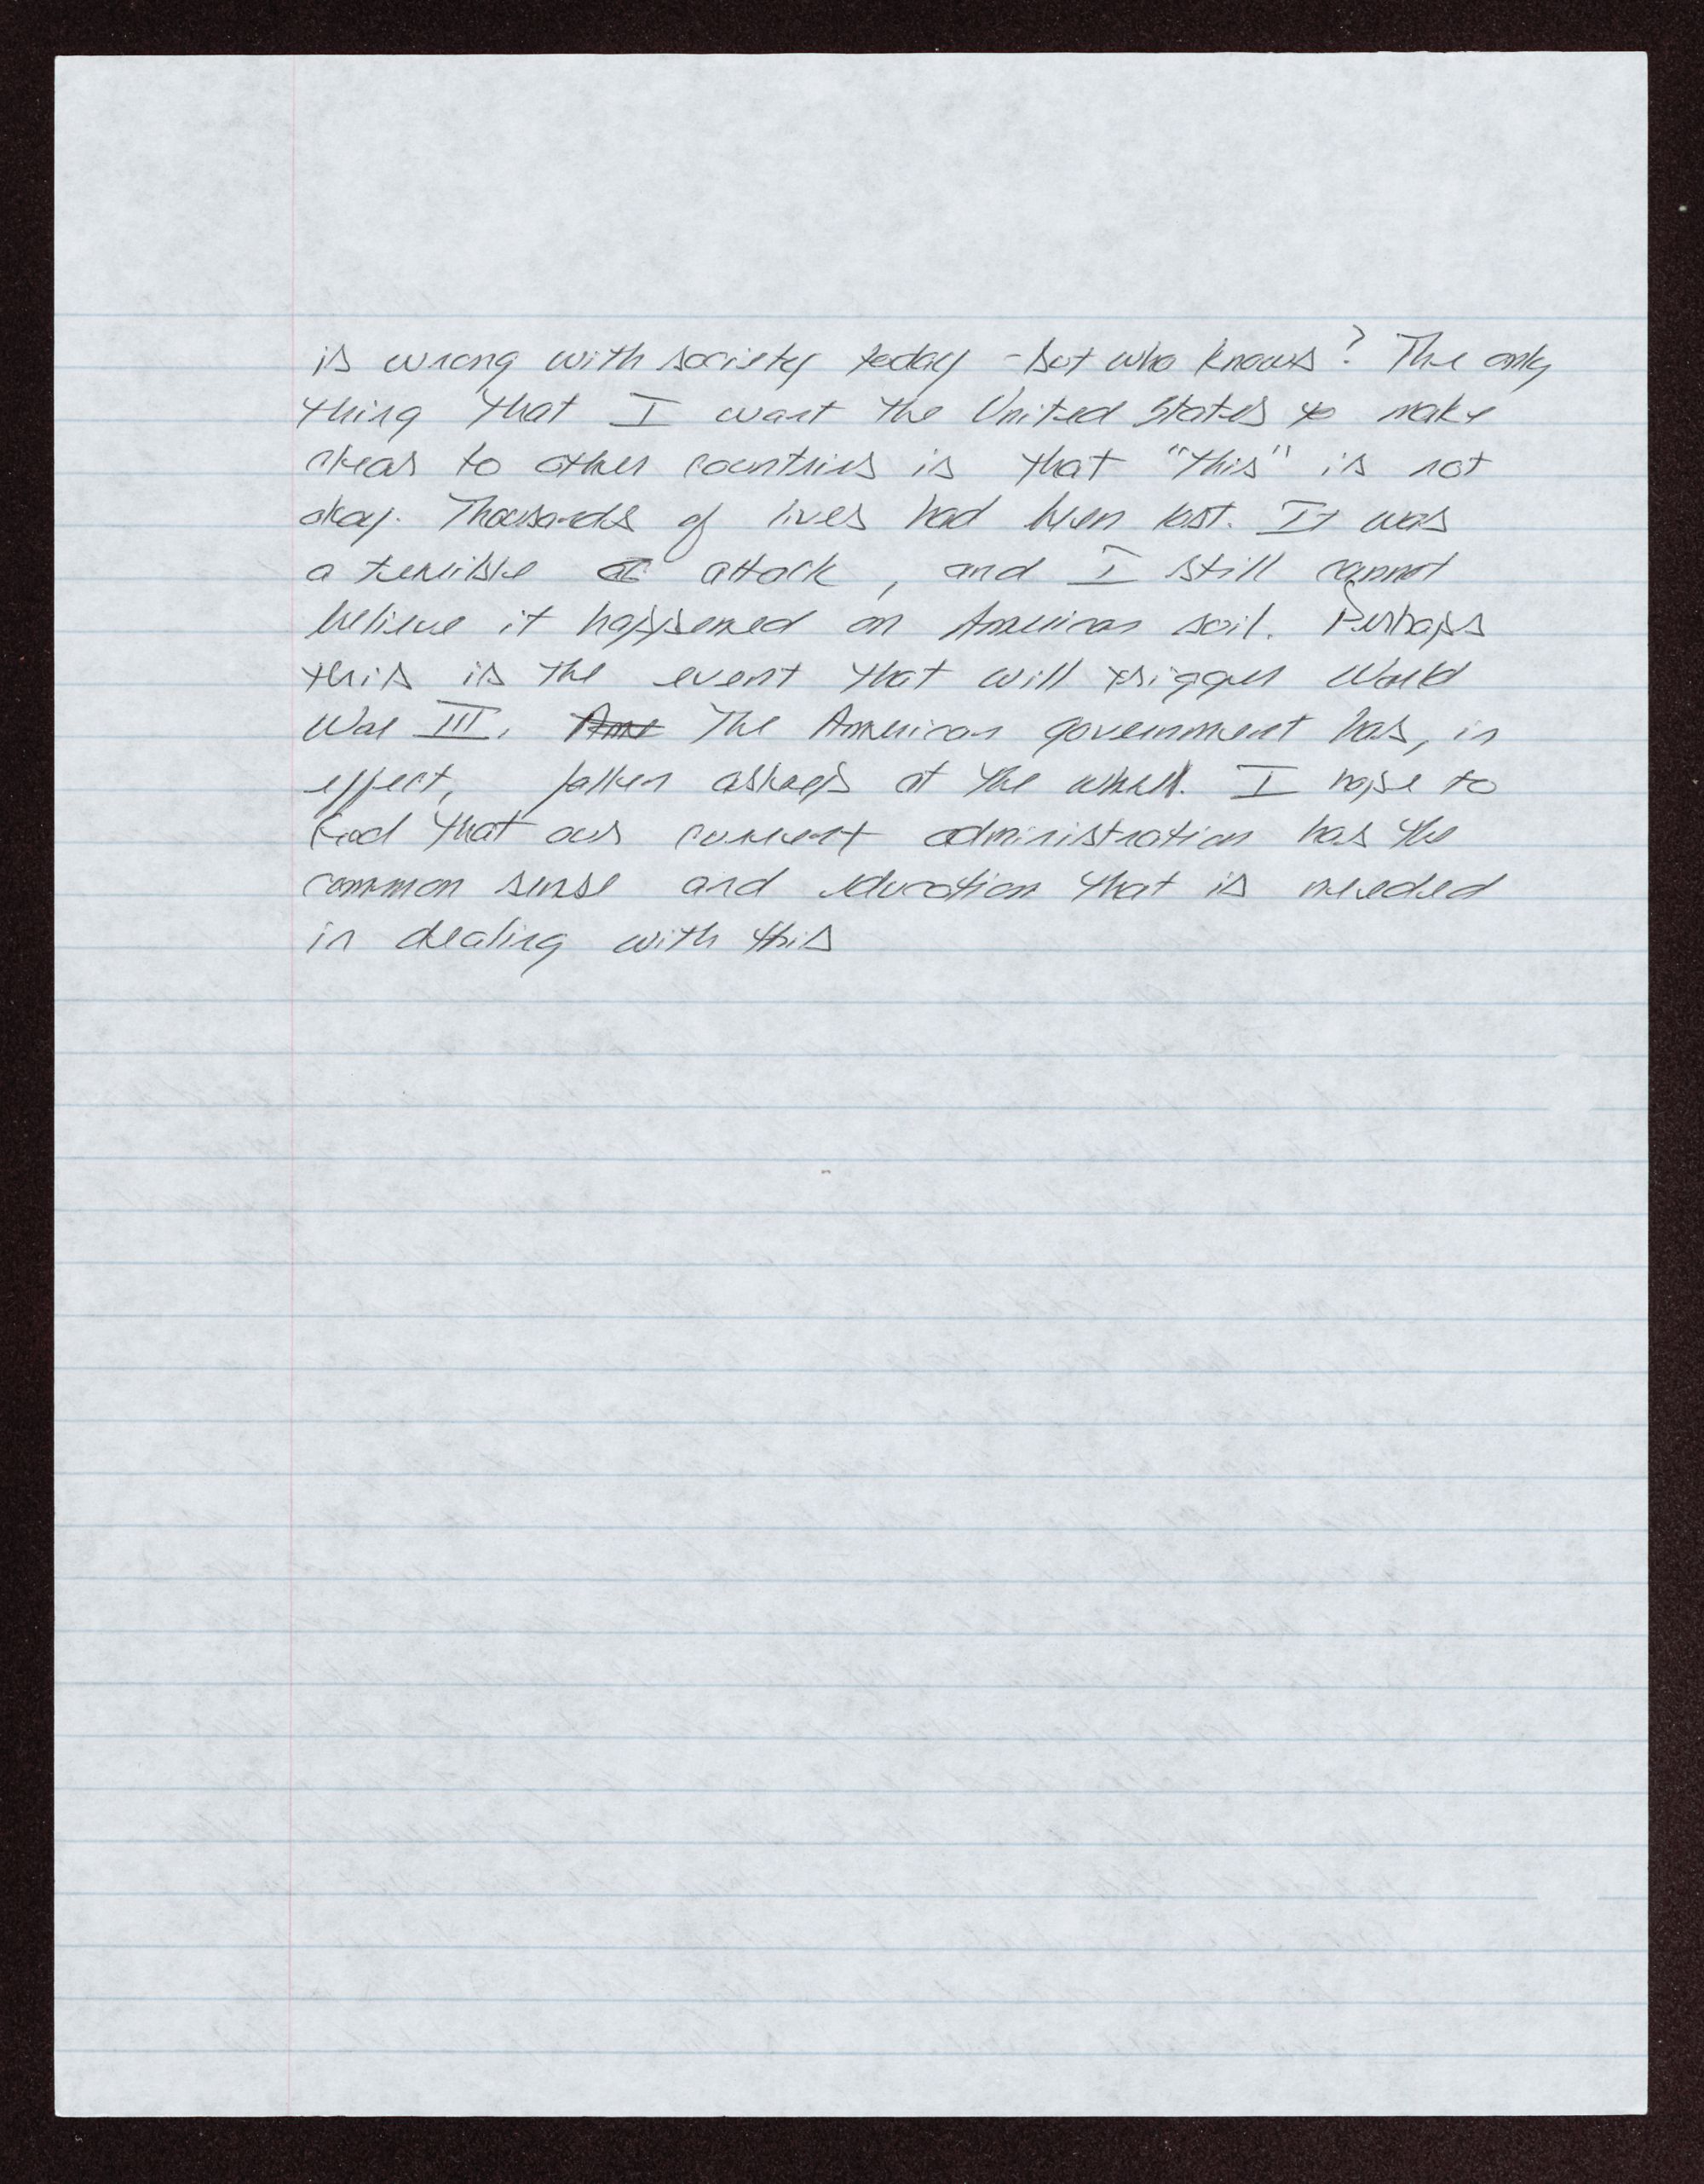 is wrong with society today - but who knows? The only
thing that I want the United States to make
clear to other countries is that "this" is not
okay. Thousands of lives had been lost. It was
a terrible at attack, and I still cannot
believe it happened on American soil. Perhaps
this is the event that will trigger World
War III. Ame The American government has, in
effect, fallen asleep at the wheel. I hope to
God that our current administration has the
common sense and education that is needed
in dealing with this